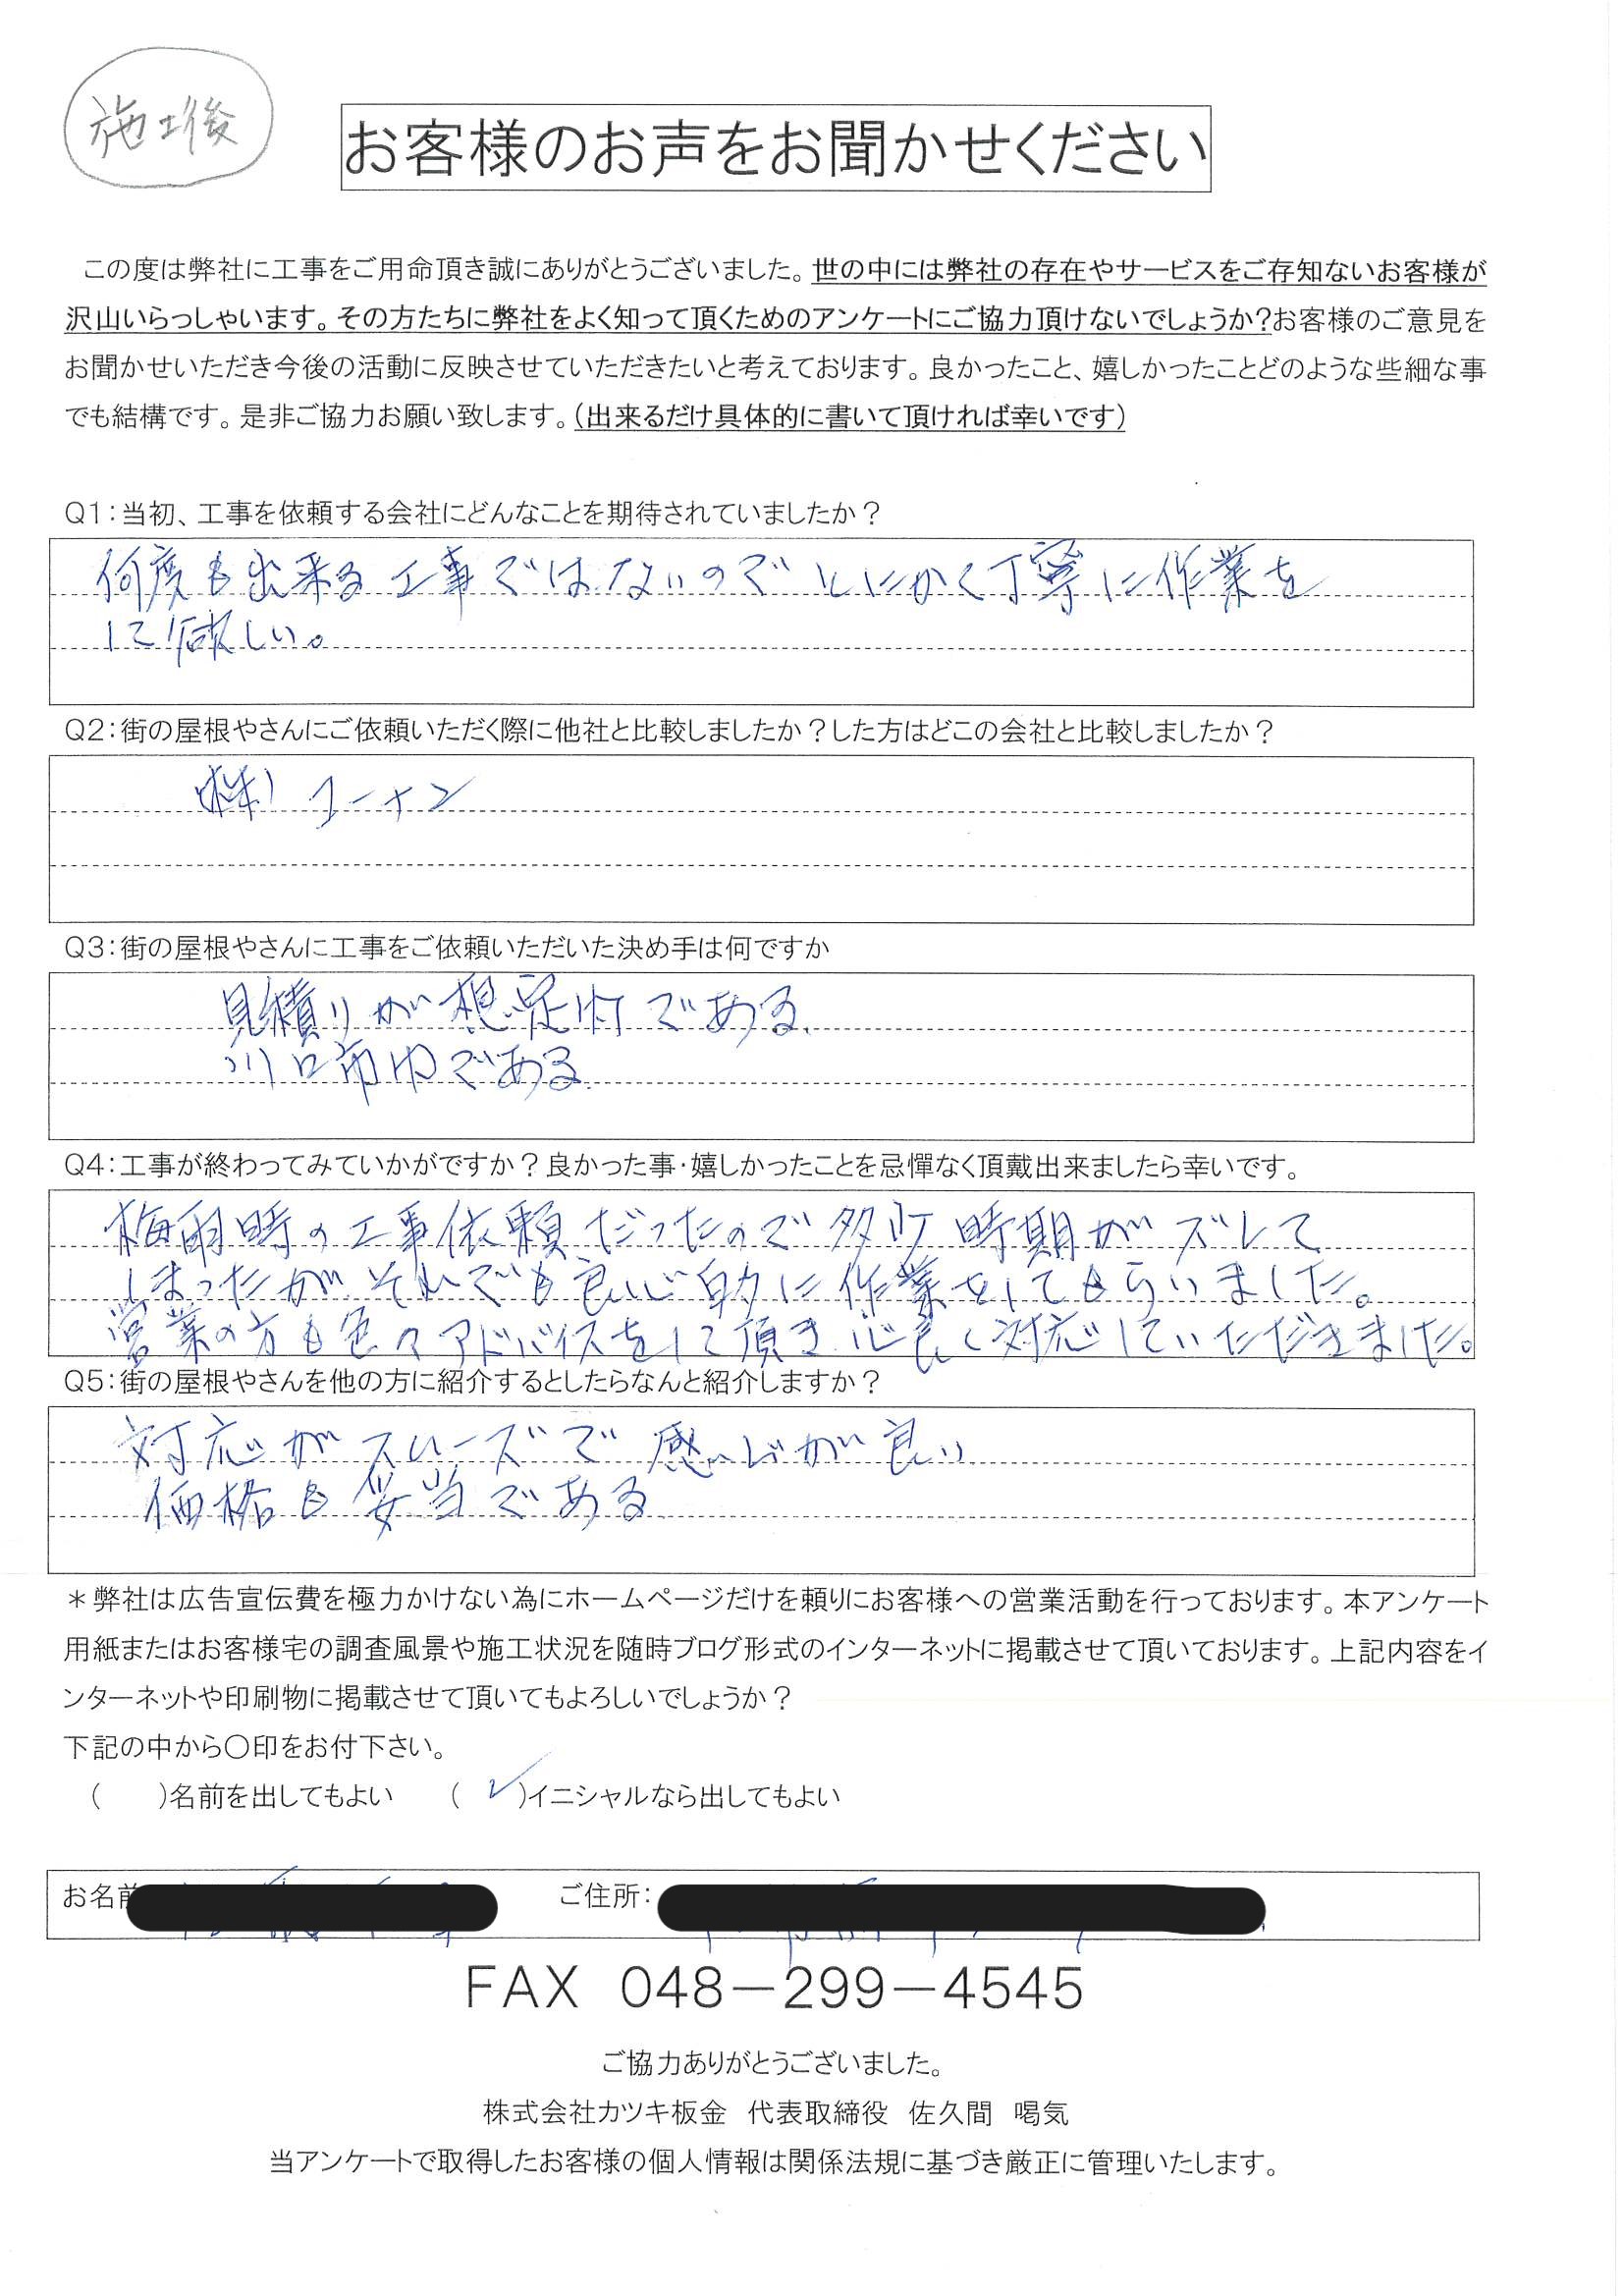 施工後
お客様のお声をお聞かせください
この度は弊社に工事をご用命頂き誠にありがとうございました。世の中には弊社の存在やサービスをご存知ないお客様が
沢山いらっしゃいます。その方たちに弊社をよく知って頂くためのアンケートにご協力頂けないでしょうか?お客様のご意見を
お聞かせいただき今後の活動に反映させていただきたいと考えております。良かったこと、嬉しかったことどのような些細な事
でも結構です。是非ご協力お願い致します。(出来るだけ具体的に書いて頂ければ幸いです)
Q1:当初、工事を依頼する会社にどんなことを期待されていましたか?
何度も出来る工事ではないのでとにかく丁寧に作業を
して欲しい。
Q2:街の屋根やさんにご依頼いただく際に他社と比較しましたか?した方はどこの会社と比較しましたか?
(株) コーナン
Q3:街の屋根やさんに工事をご依頼いただいた決め手は何ですか
見積りが想定内である
川口市内である
Q4:工事が終わってみていかがですか?良かった事・嬉しかったことを忌憚なく頂戴出来ましたら幸いです。
梅雨時の工事依頼だったので多少時期がズレて
しまったがそれでも良心的に作業をしてもらいました。
営業の方も色々アドバイスをして頂き心良く対応していただきました。
Q5:街の屋根やさんを他の方に紹介するとしたらなんと紹介しますか?
対応がスムーズで感じが良い
価格も妥当である
＊弊社は広告宣伝費を極力かけない為にホームページだけを頼りにお客様への営業活動を行っております。本アンケート
用紙またはお客様宅の調査風景や施工状況を随時ブログ形式のインターネットに掲載させて頂いております。上記内容をイ
ンターネットや印刷物に掲載させて頂いてもよろしいでしょうか?
下記の中から〇印をお付下さい。
(　　)名前を出してもよい　　(　✓)イニシャルなら出してもよい
お名前　ご住所:
FAX 048-299-4545
ご協力ありがとうございました。
株式会社カツキ板金 代表取締役 佐久間 喝気
当アンケートで取得したお客様の個人情報は関係法規に基づき厳正に管理いたします。